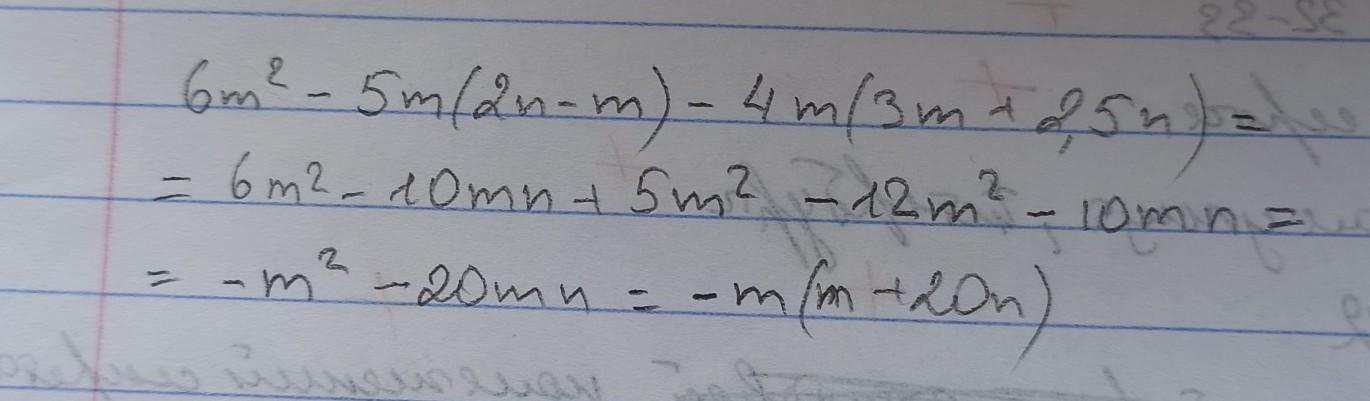 6m² - 5m(2n - m) - 4m(3m + 2,5n) =
= 6m² - 10mn + 5m² - 12m² - 10mn =
= -m² - 20mn = -m(m + 20n)